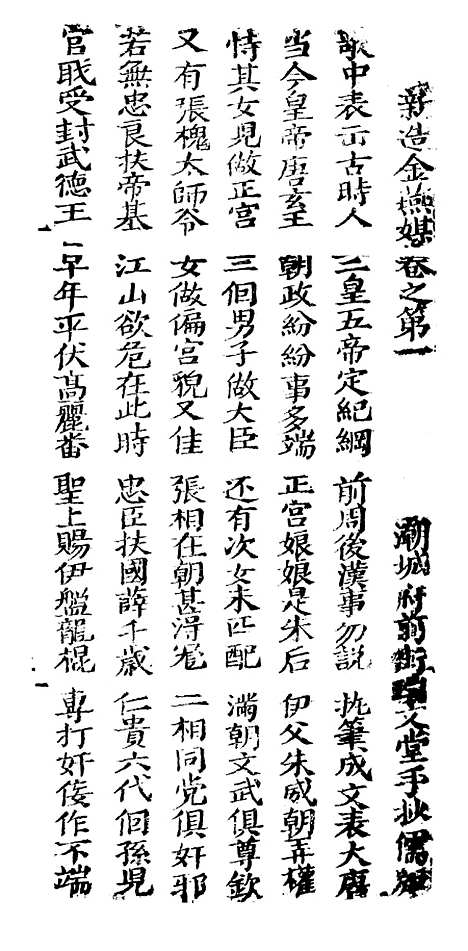 新造金燕媒卷之第一 潮城府前街瑞文堂手抄
中表示古時人 三皇五帝定紀綱 前周後漢事勿説 执筆成文表大唐
当今皇帝唐玄王 朝政紛紛事多端 正宫娘娘是朱后 伊父朱威朝弄權
恃其女児做正宫 三個男子做大臣 还有次女未匹配 满朝文武俱尊欽
又有張槐太師爷 女做偏宫貌又佳 張相在朝甚得宠 二相同党俱奸邪
若無忠良扶帝基 江山欲危在此時 忠臣扶國薛千歲 仁貴六代個孫児
官戝受封武德王 早年平伏髙麗畨 聖上賜伊盤龍棍 專打奸佞作不端